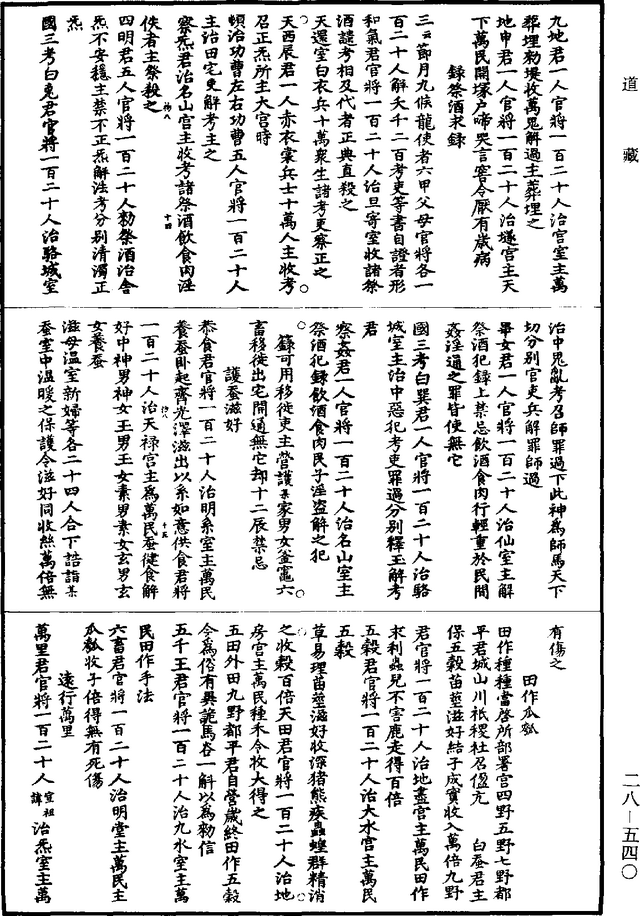 道藏
九地君一人官將一百二十人治宮室主萬
葬埋勑堤收萬鬼解過主葬埋之
地申君一人官將一百二十人治堟宮主天
下萬民開塚户啼哭言窖令厭有歲病
錄祭酒求錄
三云節月九候龍使者六甲父母官將各一
百二十人解天千二百考吏等書自證者形
和氣君官將一百二十人治旦寄室收諸祭
酒譴考相及代者正典直殺之
天還室白衣兵十萬衆生諸考吏察正之
天西辰君一人赤衣裳兵士十萬人主收考
召正炁所主大宮時
頓治功曹左右功曹五人官將一百二十人
主治田宅吏解考主之
察炁君治名山宮主收考諸祭酒飲食肉淫
佚者主祭殺之
四明君五人官將一百二十人勑祭酒治舍
炁不安穩主禁不正炁解法考分别清濁正
炁
國三考白兎君官將一百二十人治駱城室
治中鬼亂考召師罪過下此神爲師馬天下
切分别官吏兵解罪師過
畢女君一人官將一百二十人治仙室主解
祭酒犯錄上禁忌飲酒食肉行輕重於民間
姦淫通之罪皆使無它
國三考白巽君一人官將一百二十人治駱
城室主治中惡犯考吏罪過分别釋玉解考
君
察姦君一人官將一百二十人治名山室主
祭酒犯錄飲酒食肉民子淫盗解之犯
錄可用移徙吏主營護某家男女釜竈六
畜移徙出宅間通無它却十二辰禁忌
護蠶滋好
恭食君官將一百二十人治明系室主萬民
養蠶卧起齊光澤滋出以系如意供食君將
一百二十人治天禄宮主爲萬民蚕健食解
好中神男神女玉男玉女素男素女玄男玄
女養蚕
滋母温室新婦等各二十四人合下誥詣某
蚕室中温暖之保護令滋好同收絲萬倍無
有傷之
田作瓜瓠
田作種種當啓所部署宮四野五野七野都
平君城山川祇稷社召傴亢　白蚕君主
保五穀苗莖滋好結子成實收入萬倍九野
君官將一百二十人治地盡宮主萬民田作
求利蟲兒不害鹿走得百倍
五穀君官將一百二十人治大水宮主萬民
五穀
草易理苗莖滋好收深猪熊疾蟲蝗群精消
之收穀百倍天田君官將一百二十人治地
房宮主萬民種禾令牧大得之
五田外田九野都平君自營歲終田作五穀
令爲俗有異詭馬各一斛以爲勑信
五千王君官將一百二十人治九水室主萬
民田作手法
六畜君官將一百二十人治明堂主萬民主
瓜瓠收子倍得無有死傷
遠行萬里
萬里君官將一百二十人宣祖諱治炁室主萬
二八－五四〇